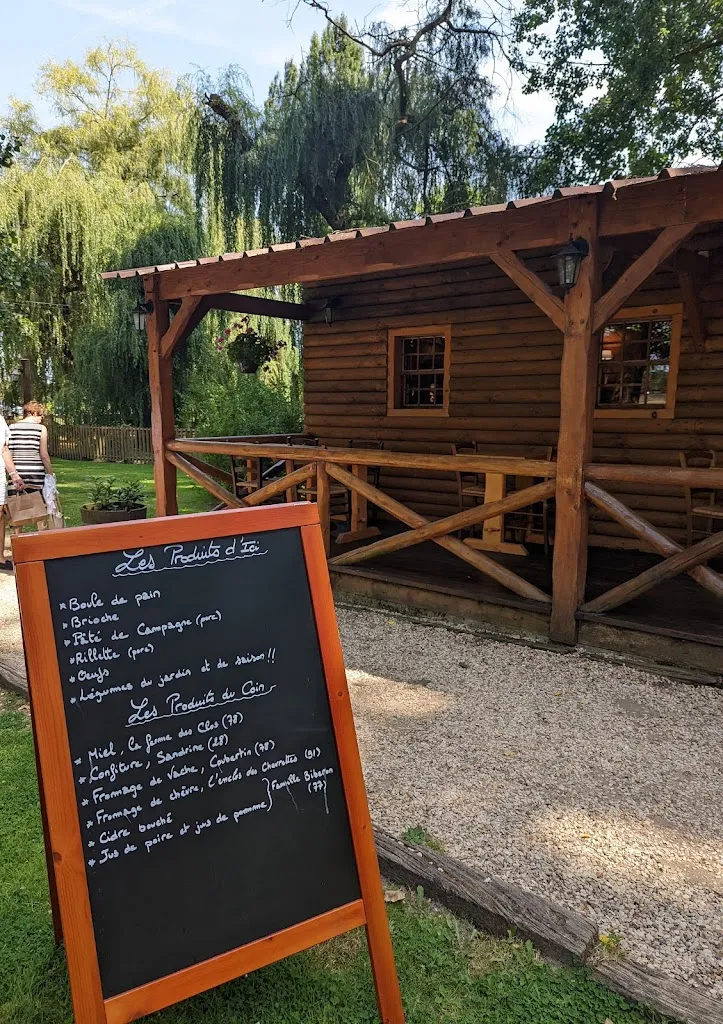 Les Produits d'Ici
* Boule de pain
* Brioche
* Pâté de Campagne (porc)
* Rillette (porc)
* Oeufs
* Légumes du jardin et de saison !!
Les Produits du Coin
* Miel, la ferme des Clos (78)
* Confiture, Sandrine (28)
* Fromage de Vache, Coubertin (78)
* Fromage de chèvre, l'enclos des Chevrettes (91)
* Cidre bouché
* Jus de poire et jus de pomme } Famille Biberon (77)